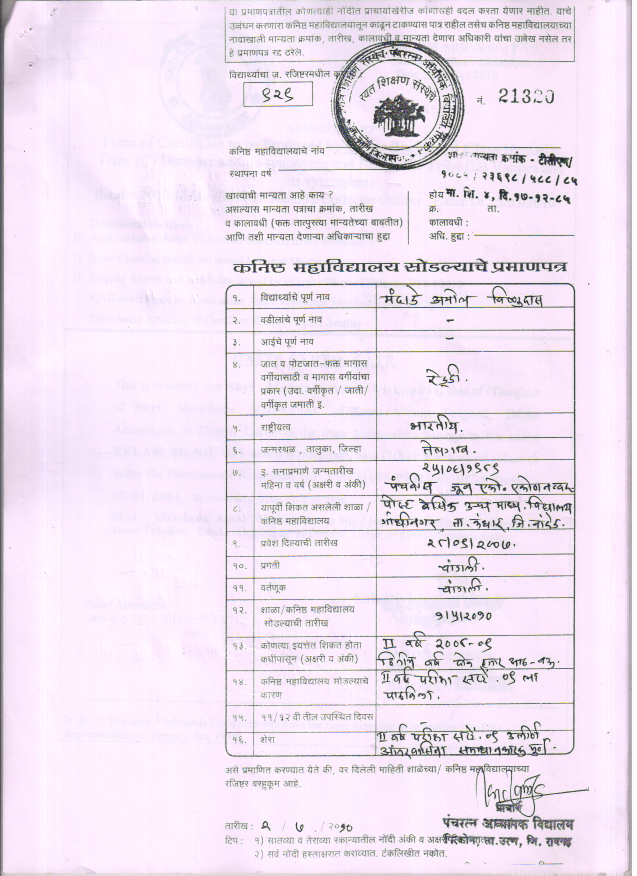 या प्रमाणपत्रातील कोणत्याही नोंदीत प्राचार्याखेरीज कोणासही बदल करता येणार नाहीत. याचे
उल्लंघन करणारा कनिष्ठ महाविद्यालयातून काढून टाकण्यास पात्र राहील तसेच कनिष्ठ महाविद्यालयाच्या
नावाखाली मान्यता क्रमांक, तारीख, कालावधी व मान्यता देणारा अधिकारी यांचा उल्लेख नसेल तर
हे प्रमाणपत्र रद्द ठरेल.
विद्यार्थ्याचा ज. रजिष्टरमधील
८२९
रयत शिक्षण संस्थेचे
नं. 21320
कनिष्ठ महाविद्यालयाचे नांव
मान्यता क्रमांक - टीसीएम/
स्थापना वर्ष
१०८५ / २३६९८ / ५८८ / ८५
खात्याची मान्यता आहे काय ?
होय मा. शि. ४, दि. १७-१२-८५
असल्यास मान्यता पत्राचा क्रमांक, तारीख
क्र. ता.
व कालावधी (फक्त तात्पुरत्या मान्यतेच्या बाबतीत)
कालावधी :
आणि तशी मान्यता देणाऱ्या अधिकाऱ्याचा हुद्दा
अधि. हुद्दा :
कनिष्ठ महाविद्यालय सोडल्याचे प्रमाणपत्र
१. विद्यार्थ्याचे पूर्ण नाव मंदाडे अमोल विष्णुदास
२. वडीलांचे पूर्ण नाव -
३. आईचे पूर्ण नाव -
४. जात व पोटजात-फक्त मागास
वर्गीयासाठी व मागास वर्गीयांचा
प्रकार (उदा. वर्गीकृत / जाती/
वर्गीकृत जमाती इ.
रेड्डी.
५. राष्ट्रीयत्व भारतीय.
६. जन्मस्थळ , तालुका, जिल्हा तेलगाव.
७. इ. सनाप्रमाणे जन्मतारीख
महिना व वर्ष (अक्षरी व अंकी)
२५/०६/१९८९
पंचवीस जून एको.
८. यापूर्वी शिकत असलेली शाळा /
कनिष्ठ महाविद्यालय
पोस्ट बेसिक उच्च माध्य. विद्यालय
गांधीनगर, ता. कंधार, जि. नांदेड.
९. प्रवेश दिल्याची तारीख २८/०९/२००७.
१०. प्रगती चांगली.
११. वर्तणूक चांगली.
१२. शाळा/कनिष्ठ महाविद्यालय
सोडल्याची तारीख
१/५/२०१०
१३. कोणत्या इयत्तेत शिकत होता
कधीपासून (अक्षरी व अंकी)
II वर्ष २००८-०९
द्वितीय वर्ष दोन हजार आठ-नऊ.
१४. कनिष्ठ महाविद्यालय सोडल्याचे
कारण
II वर्ष परीक्षा सप्टें. ०९ ला
१५. ११/१२ वी तील उपस्थित दिवस -
१६. शेरा II वर्ष परीक्षा सप्टें. ०९ उत्तीर्ण
आंतरवासिता समाधानकारक पूर्ण.
असे प्रमाणित करण्यात येते की, वर दिलेली माहिती शाळेच्या/ कनिष्ठ महाविद्यालयाच्या
रजिष्टर बरहुकूम आहे.
प्राचार्य
तारीख : २ / ७ / २०१०
पंचरत्न अध्यापक विद्यालय
टिप : १) सातव्या व तेराव्या रकान्यातील नोंदी अंकी व
ता.उरण, जि. रायगड
२) सर्व नोंदी हस्ताक्षरात कराव्यात. टंकलिखीत नकोत.